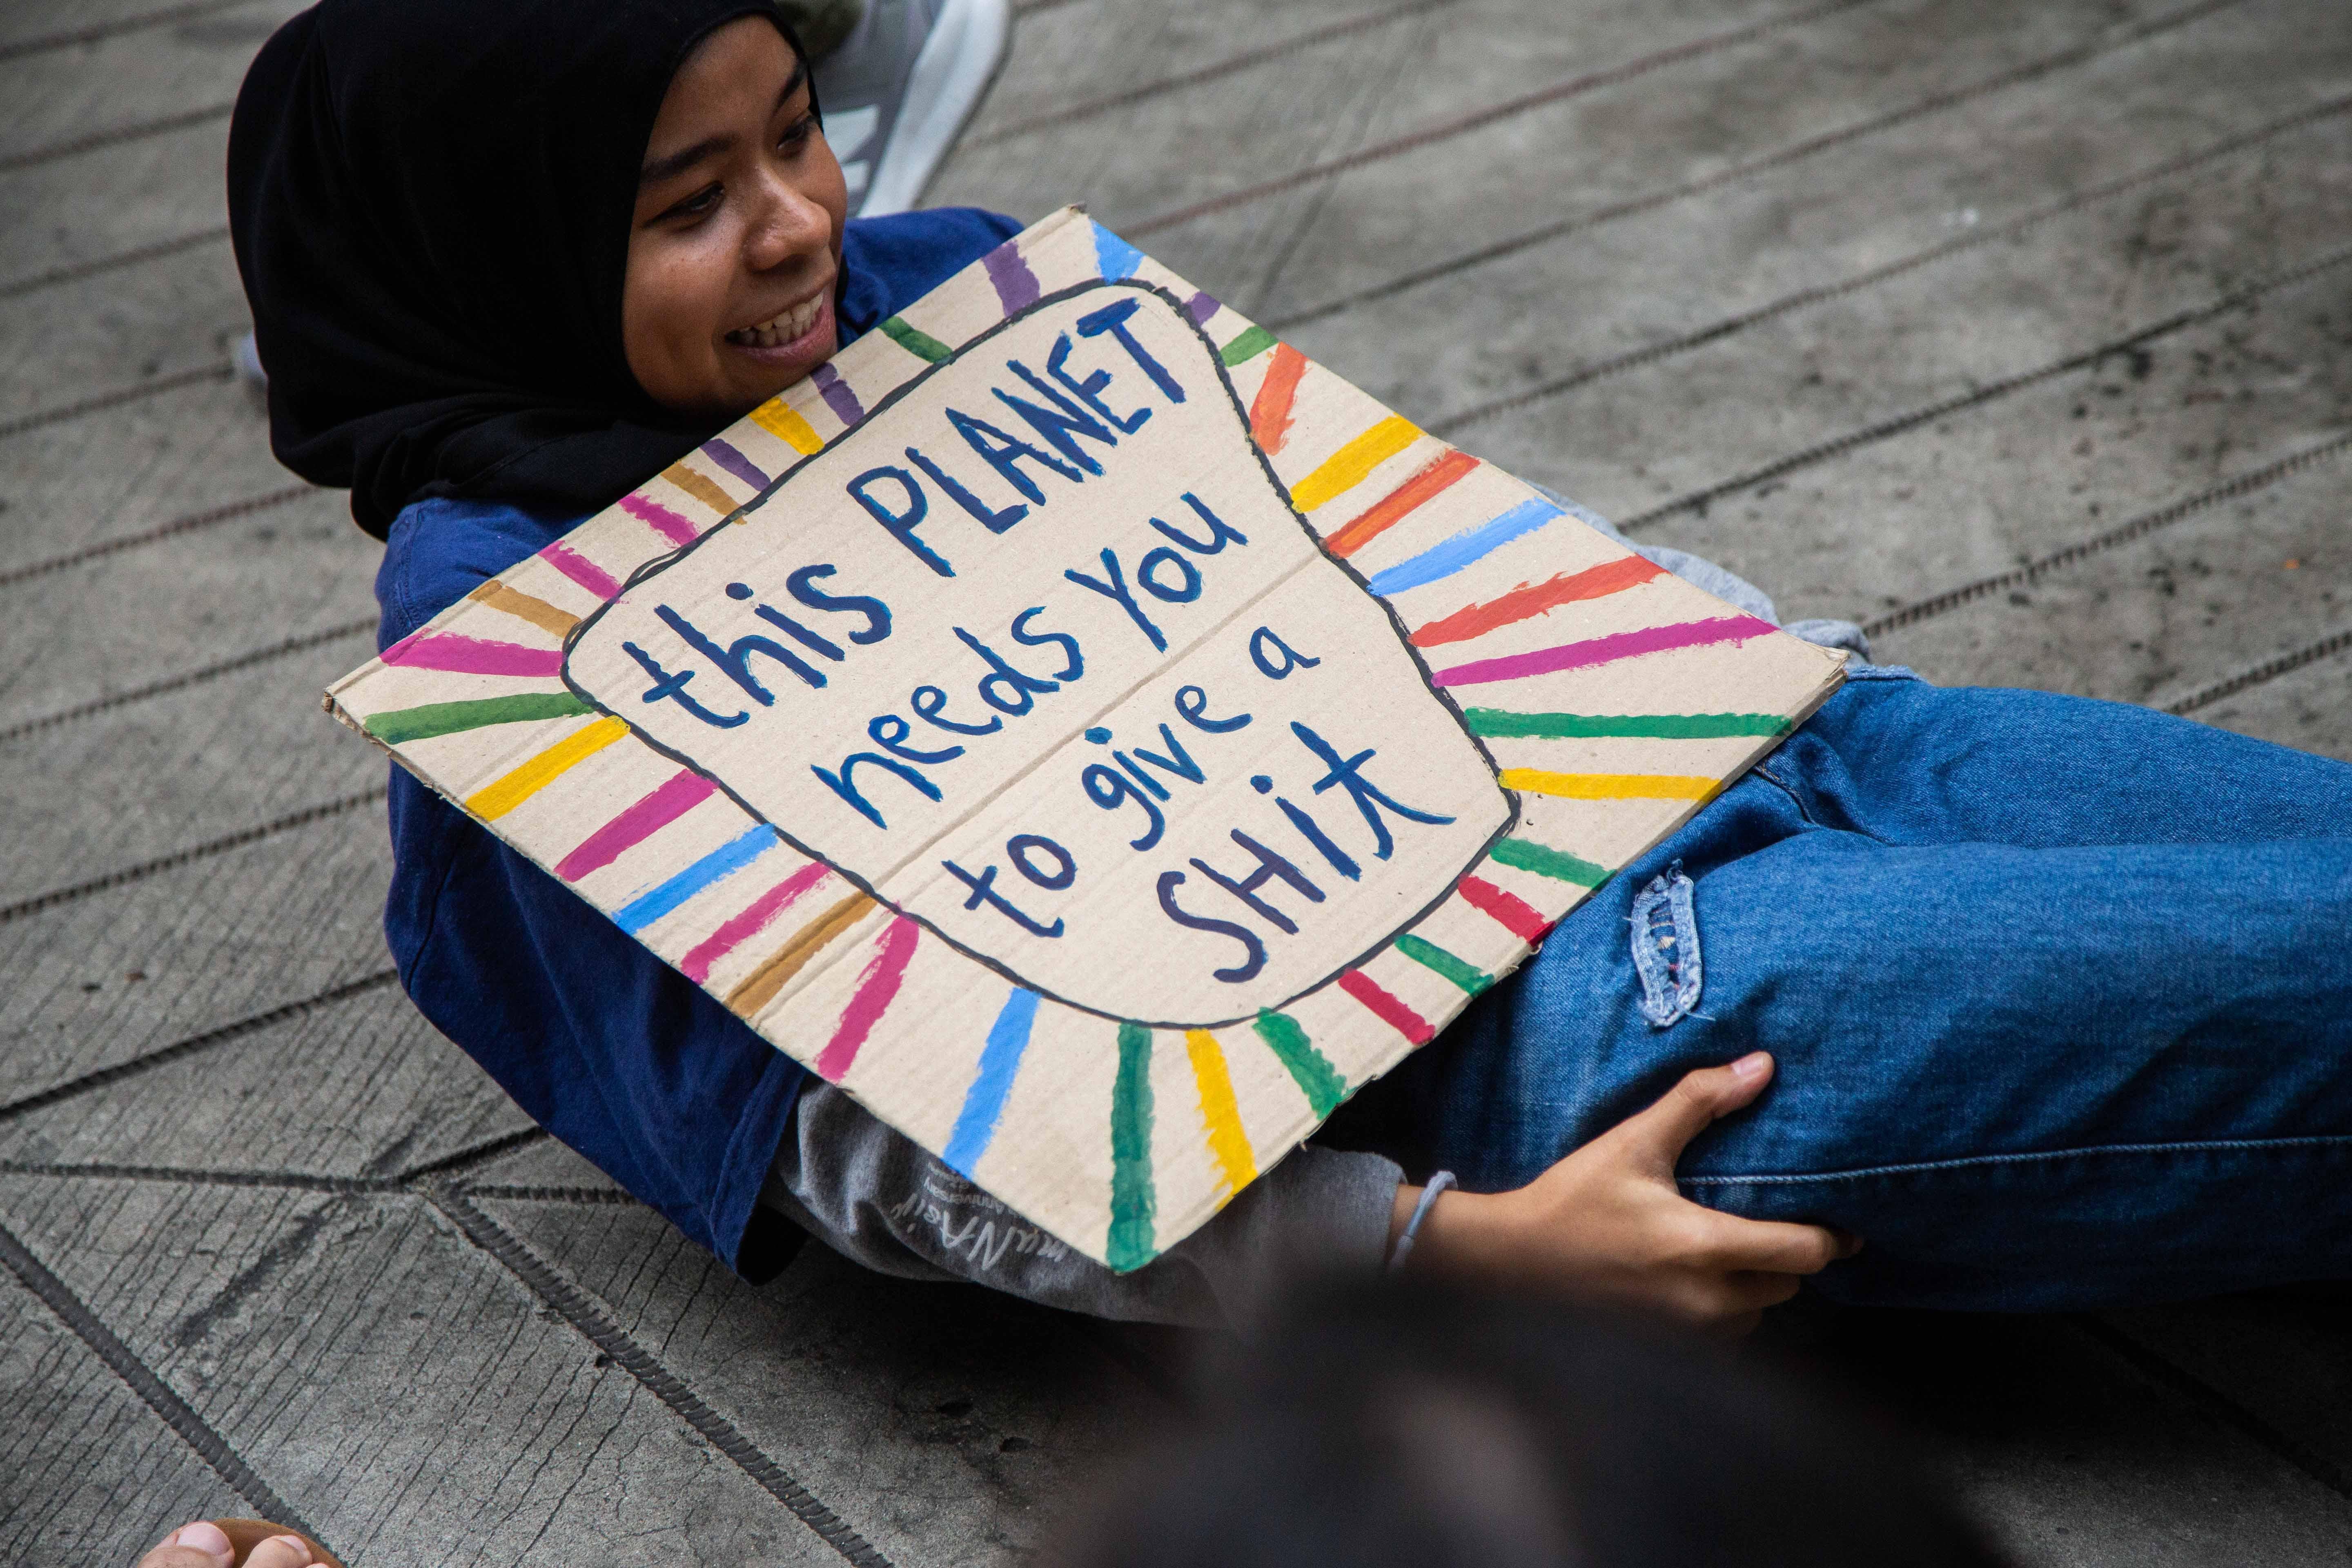 this PLANET
needs You
to give a
SHit